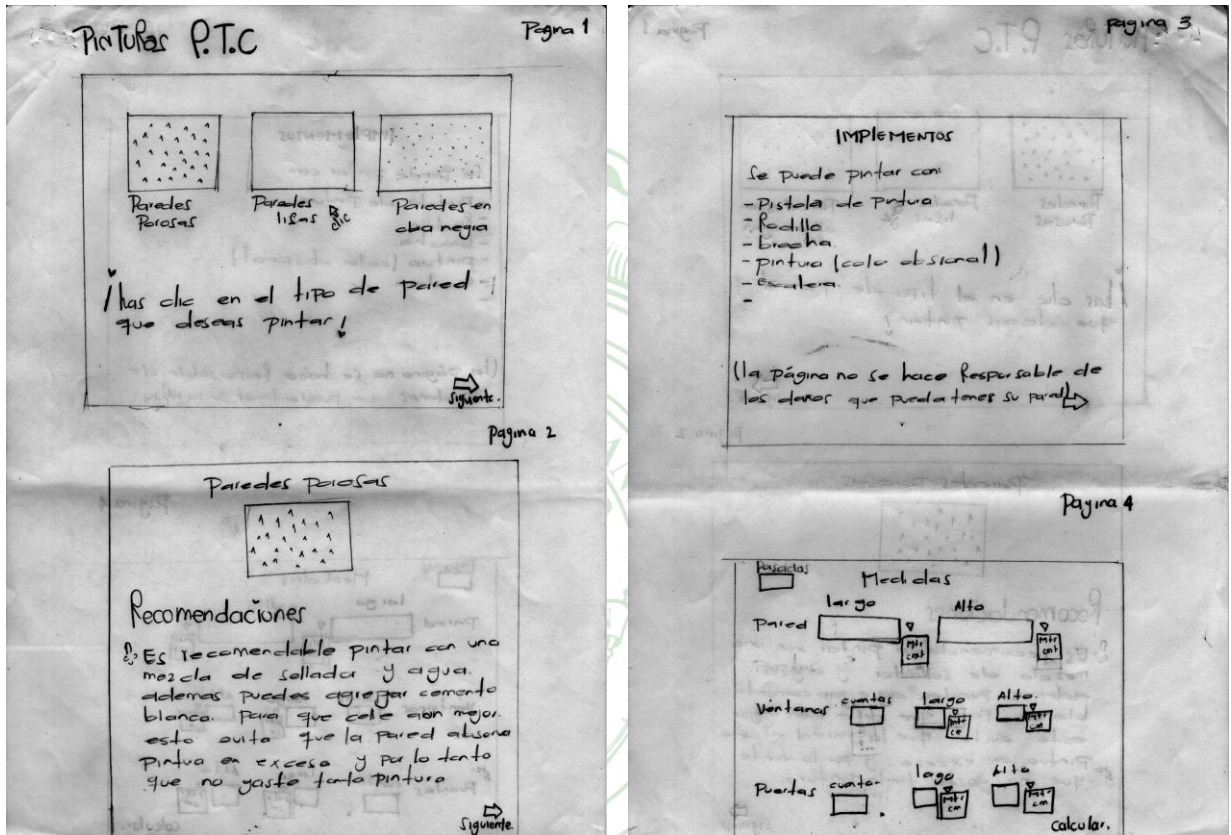 PINTURAS P.T.C
Pagina 1
Paredes Porosas
Paredes lisas
clic
Paredes en oba negra
¡has clic en el tipo de pared
que deseas pintar!
Siguiente.
Pagina 2
Paredes Porosas
Recomendaciones
Es recomendable pintar con una
mezcla de sellador y agua.
ademas puedes agregar cemento
blanco. Para que selle aun mejor.
esto evita que la pared absorva
Pintura en exceso y por lo tanto
que no gaste tanta pintura
Siguiente.
Pagina 3
IMPLEMENTOS
Se puede pintar con:
- Pistola de Pintura
- Rodillo
- brocha.
- pintura (colo obsional)
- Escalera.
-
(la página no se hace Responsable de
los daños que pueda tener su pared)
Pagina 4
Pasadas
Medidas
largo Alto
Pared
Mtr cmt
Mtr cmt
Ventanas cuantas largo Alto
Mtr cm
Mtr cm
Puertas cuantas lago Alto
Mtr cm
Mtr cm
calcular.